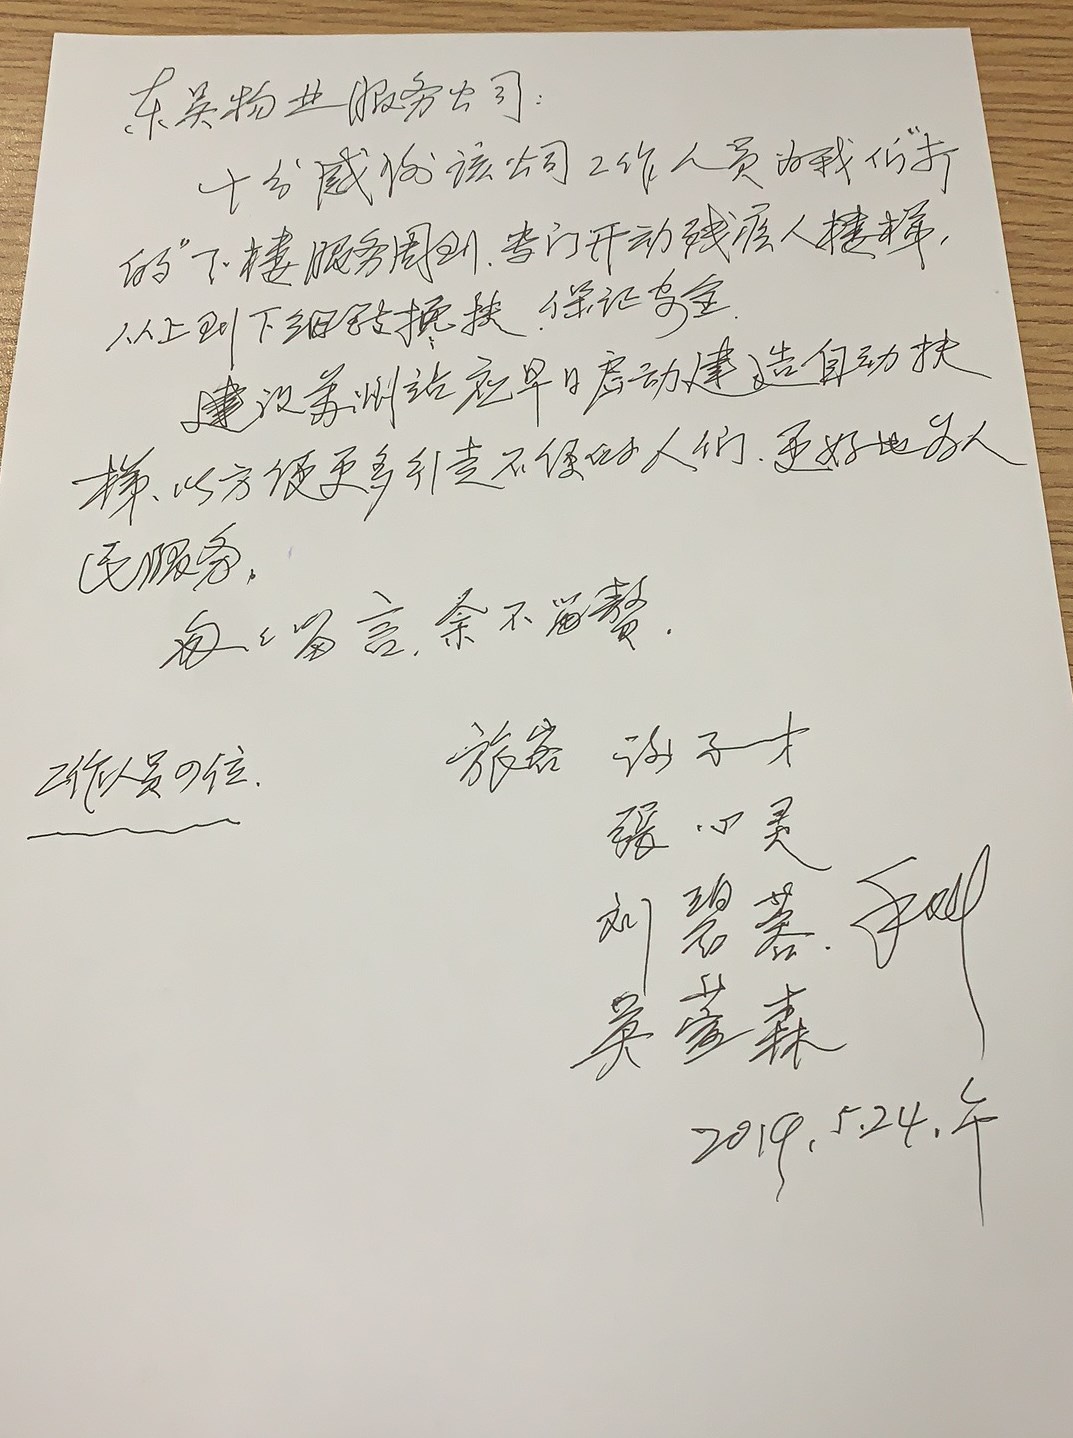 东吴物业服务公司:
十分感谢该公司工作人员为我们"打
的"下楼服务周到、专门开动残疾人楼梯,
从上到下细致搀扶、保证安全.
建议苏州站应早日启动建造自动扶
梯、以方便更多行走不便的人们、更好地为人
民服务。
匆匆留言、余不留赘.
旅客 谢子才
工作人员四位.
張心灵
刘碧蓉.
英蓉森
2019.5.24.午